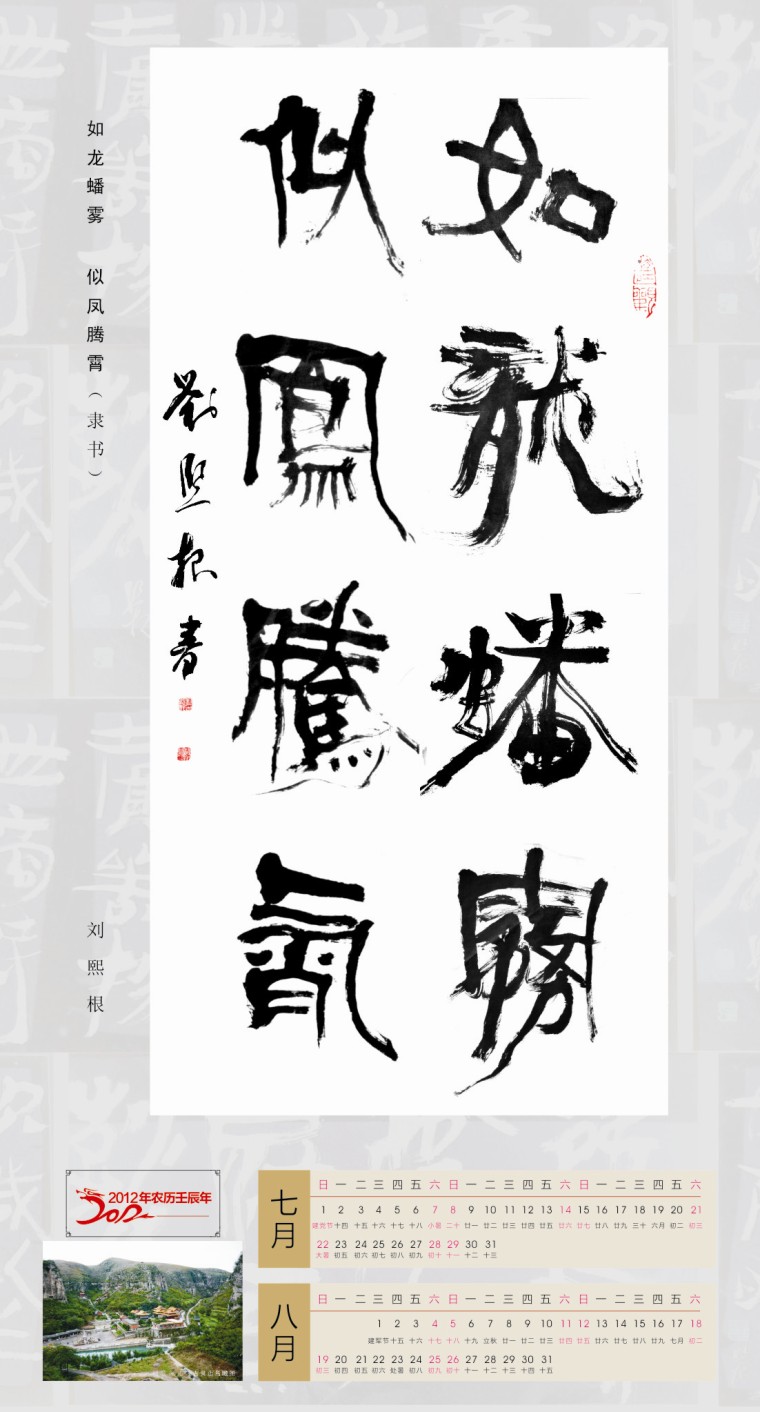 如龍蟠霧
似鳳騰霄
劉熙根書
如龙蟠雾 似凤腾霄（隶书）
刘熙根
2012年农历壬辰年
2012
七月
日 一 二 三 四 五 六 日 一 二 三 四 五 六 日 一 二 三 四 五 六
1 2 3 4 5 6 7 8 9 10 11 12 13 14 15 16 17 18 19 20 21
建党节 十四 十五 十六 十七 十八 小暑 二十 廿一 廿二 廿三 廿四 廿五 廿六 廿七 廿八 廿九 三十 六月 初二 初三
22 23 24 25 26 27 28 29 30 31
大暑 初五 初六 初七 初八 初九 初十 十一 十二 十三
八月
日 一 二 三 四 五 六 日 一 二 三 四 五 六 日 一 二 三 四 五 六
1 2 3 4 5 6 7 8 9 10 11 12 13 14 15 16 17 18
建军节 十五 十六 十七 十八 十九 立秋 廿一 廿二 廿三 廿四 廿五 廿六 廿七 廿八 廿九 七月 初二
19 20 21 22 23 24 25 26 27 28 29 30 31
初三 初四 初五 初六 处暑 初八 初九 初十 十一 十二 十三 十四 十五